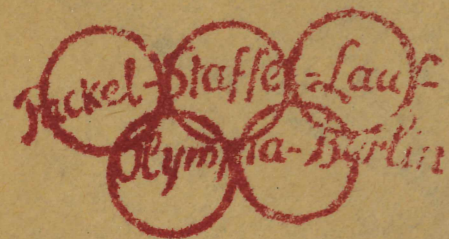 Fackel-Staffel-Lauf-
Olympia-Berlin